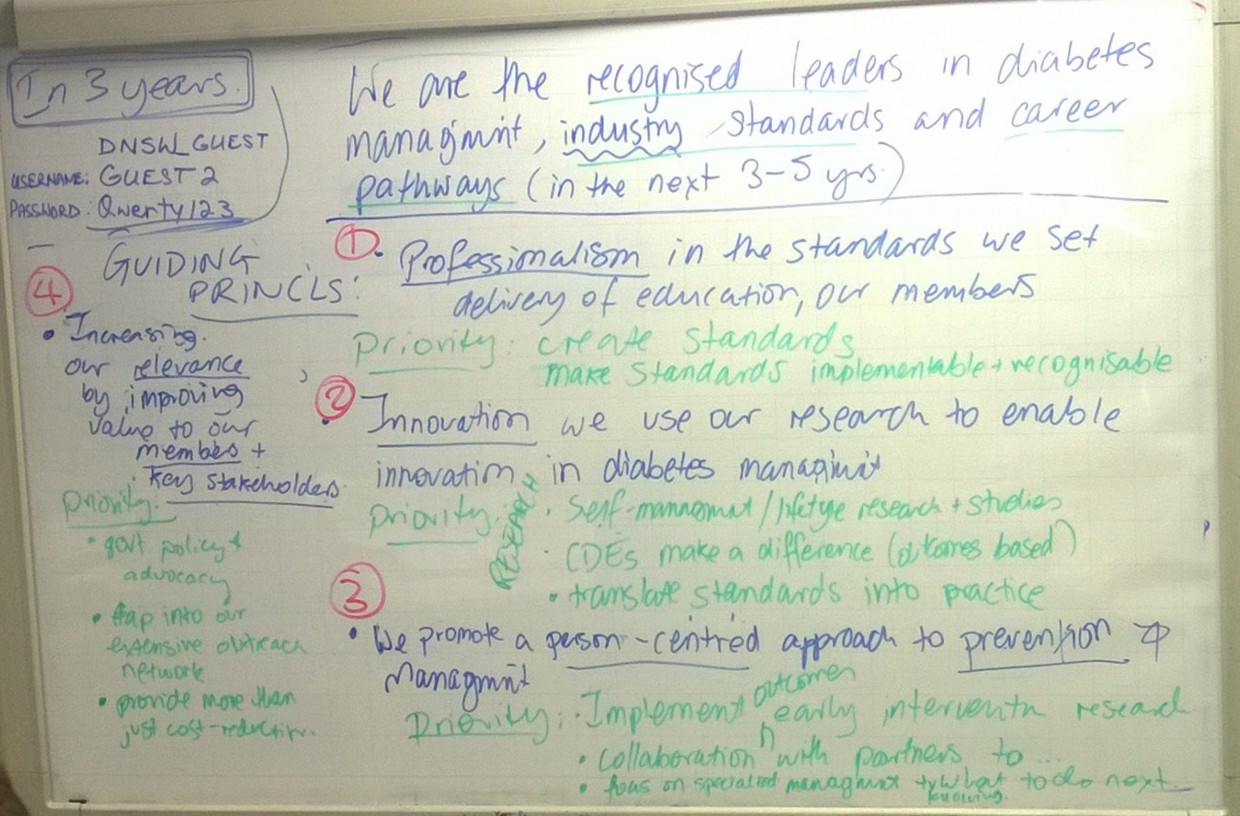 In 3 years.
DNSW_GUEST
USERNAME: GUEST 2
PASSWORD: Qwerty123
We are the recognised leaders in diabetes
managmnt, industry standards and career
pathways (in the next 3-5 yrs.)
GUIDING
PRINCLS:
1. Professionalism in the standards we set
delivery of education, our members
Priority: create standards
make standards implementable + recognisable
2 Innovation we use our research to enable
innovation in diabetes managmnt
Priority: RESEARCH
• Self-managmnt / research + studies
• CDEs make a difference (outcomes based)
• translate standards into practice
3
• We promote a person-centred approach to prevention +
Managmnt
Priority: • Implement outcomes early interventn research
• Collaboration with partners to ...
• focus on managmnt + what to do next
4
• Increasing
our relevance
by improving
value to our
members +
key stakeholders.
Priority:
• govt policy +
advocacy
• tap into our
extensive outreach
network
• provide more than
just cost-reduction.